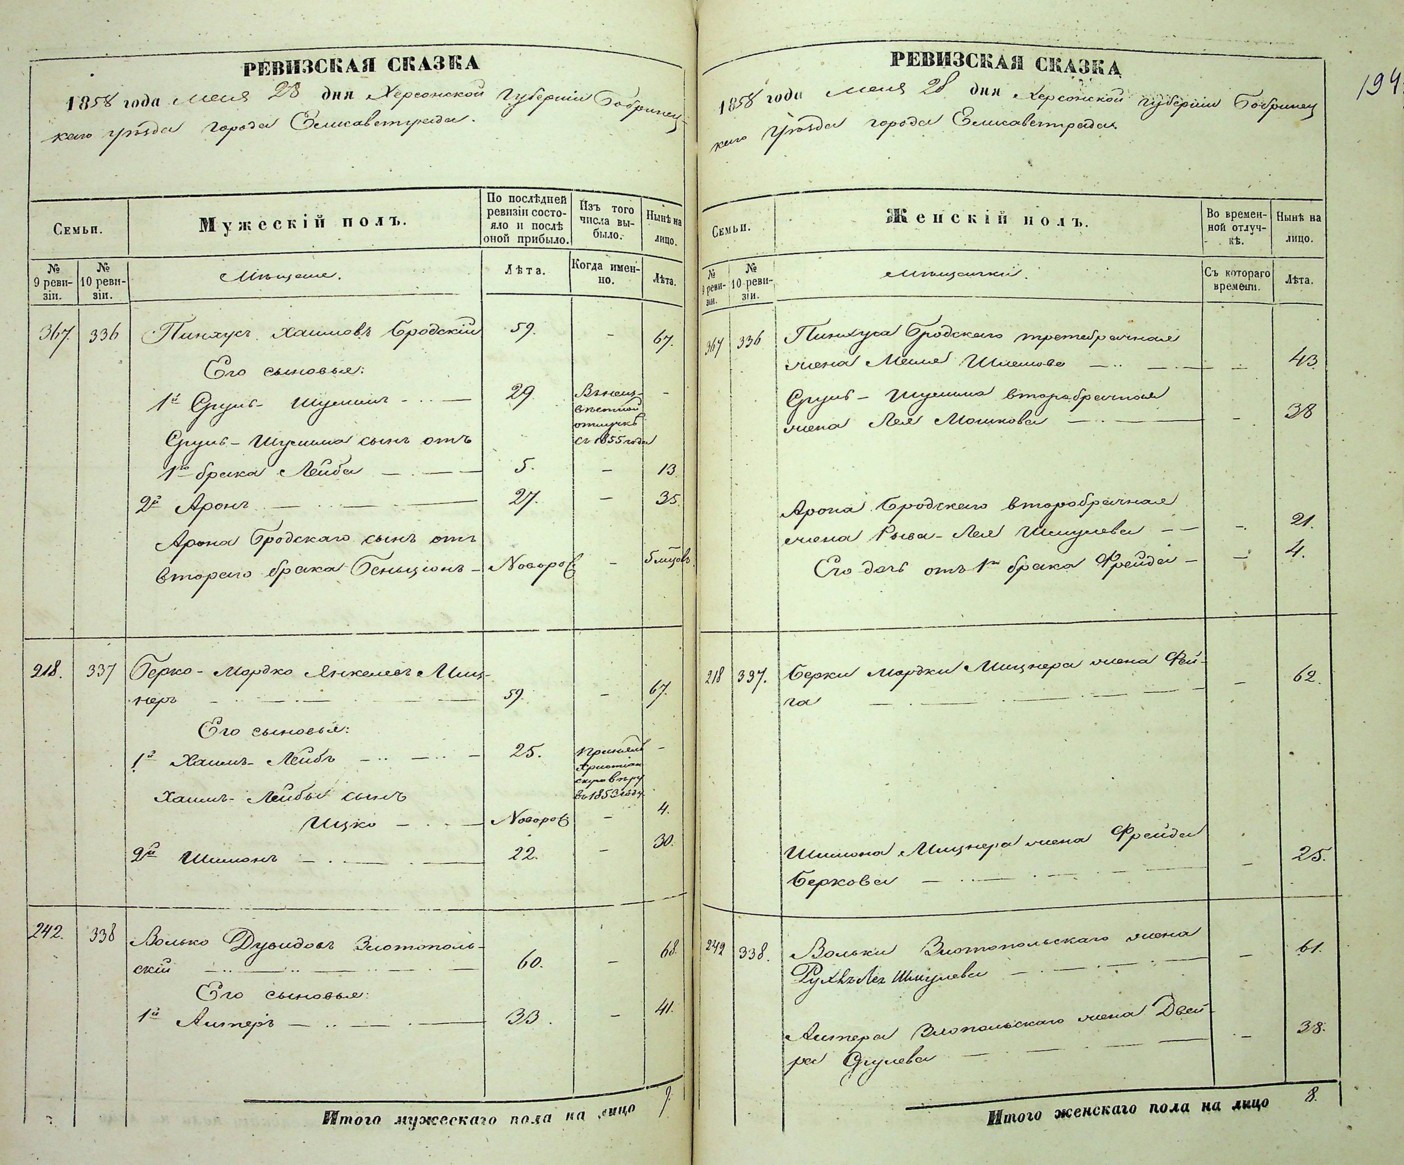 РЕВИЗСКАЯ СКАЗКА
1858 года мая 28 дня Херсонской губерніи Бобринец-
каго уѣзда города Елисаветграда.
Семьи.
Мужескій полъ.
По послѣдней ревизіи состояло и послѣ оной прибыло.
Изъ того числа выбыло.
Нынѣ на лицо.
№ 9 ревизіи.
№ 10 ревизіи.
Мѣщане.
Лѣта.
Когда именно.
Лѣта.
367. 336 Пинхусъ Хаимовъ Бродскій 59. – 67.
Его сыновья:
1й Сруль-Шулимъ 29 Въ неиз- –
вѣстной
отлучкѣ
съ 1855 года
Сруль-Шулима сынъ отъ
1го брака Лейба 5. – 13
2й Аронъ 27. – 35.
Арона Бродскаго сынъ отъ
втораго брака Беньціонъ – Новорож – 5 мцовъ
218. 337 Берко-Мордко Янкелевъ Миц-
неръ 59. – 67.
Его сыновья:
1й Хаимъ-Лейбъ 25. Принялъ –
Христіан
скую вѣру
въ 1853 году
Хаимъ-Лейбы сынъ
Ицко Новорож – 4.
2й Шимонъ 22. – 30.
242. 338 Волько Дувидовъ Злотополь-
скій 60. – 68.
Его сыновья:
1й Алтеръ 33. – 41.
Итого мужескаго пола на лицо 9.
194
РЕВИЗСКАЯ СКАЗКА
1858 года мая 28 дня Херсонской губерніи Бобринец
каго уѣзда города Елисаветграда
Семьи.
Женскій полъ.
Во временной отлучкѣ.
Нынѣ на лицо.
№ 9 ревизіи.
№ 10 ревизіи.
Мѣщанки.
Съ котораго времени.
Лѣта.
367 336 Пинхуса Бродскаго третебрачная
жена Меня Шлемова – 43.
Сруль-Шулима второбрачная
жена Лея Мошкова – 38
Арона Бродскаго второбрачная
жена Рыва-Лея Шмулева – 21.
Его дочь отъ 1го брака Фрейда – 4.
218 337. Берки Мордки Мицнера жена Фей-
га – 62.
Шимона Мицнера жена Фрейда
Беркова – 25.
242 338. Вольки Злотопольскаго жена
Рухль Лея Шмулева – 61.
Алтера Злопольскаго жена Двей-
ра Срулева – 38.
Итого женскаго пола на лицо 8.